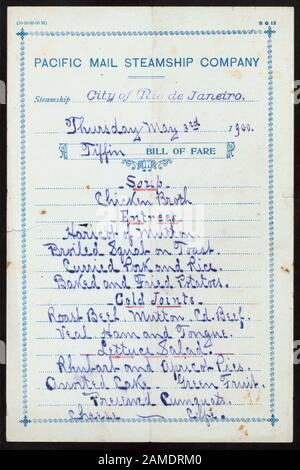 PACIFIC MAIL STEAMSHIP COMPANY
Steamship City of Rio de Janeiro.
Thursday May 3rd 1900.
Tiffin BILL OF FARE
Soup
Chicken Broth
Entrees
Haricot of Mutton
Broiled Squab on Toast.
Curried Pork and Rice.
Baked and Fried Potatoes.
Cold Joints.
Roast Beef. Mutton. Cd. Beef.
Veal Ham and Tongue.
Lettuce Salad.
Rhubarb and Apricot Pies.
Assorted Cake. Green Fruit.
Preserved Cumquats.
Cheese Cafe.
alamy
Image ID: 2AMDRM0
www.alamy.com